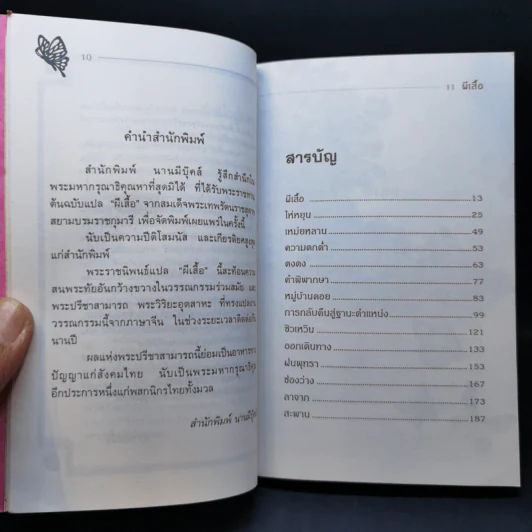 10
คำนำสำนักพิมพ์
สำนักพิมพ์ นานมีบุ๊คส์ รู้สึกสำนึกใน
พระมหากรุณาธิคุณหาที่สุดมิได้ ที่ได้รับพระราชทาน
ต้นฉบับแปล "ผีเสื้อ" จากสมเด็จพระเทพรัตนราชสุดาฯ
สยามบรมราชกุมารี เพื่อจัดพิมพ์เผยแพร่ในครั้งนี้
นับเป็นความปีติโสมนัส และเกียรติยศสูงสุด
แก่สำนักพิมพ์
พระราชนิพนธ์แปล "ผีเสื้อ" นี้สะท้อนความ
สนพระทัยอันกว้างขวางในวรรณกรรมร่วมสมัย และ
พระปรีชาสามารถ พระวิริยะอุตสาหะ ที่ทรงแปล
วรรณกรรมนี้จากภาษาจีน ในช่วงระยะเวลาติดต่อกัน
นานปี
ผลแห่งพระปรีชาสามารถนี้ย่อมเป็นอาหารทาง
ปัญญาแก่สังคมไทย นับเป็นพระมหากรุณาธิคุณ
อีกประการหนึ่งแก่พสกนิกรไทยทั้งมวล
สำนักพิมพ์ นานมีบุ๊คส์
11 ผีเสื้อ
สารบัญ
ผีเสื้อ 13
ไห่หยุน 25
เหม่ยหลาน 49
ความตกต่ำ 53
ตงตง 63
คำพิพากษา 77
หมู่บ้านดอย 83
การกลับคืนสู่ฐานะตำแหน่ง 99
ชิวเหวิน 121
ออกเดินทาง 133
ฝนพุทรา 153
ช่องว่าง 167
ลาจาก 173
สะพาน 187